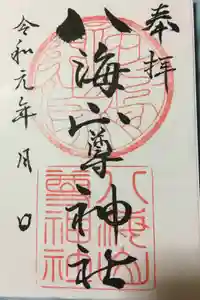 奉拝
八海山尊神社
令和元年 月 日
八海山
尊神社